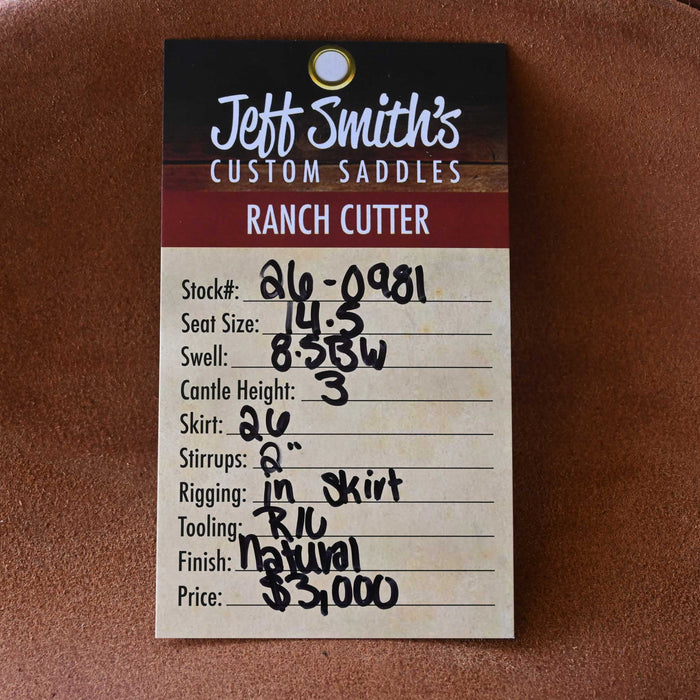 Jeff Smith's
CUSTOM SADDLES
RANCH CUTTER
Stock#: 26-0981
Seat Size: 14.5
Swell: 8.5BW
Cantle Height: 3
Skirt: 26
Stirrups: 2"
Rigging: in skirt
Tooling: R/C
Finish: Natural
Price: $3,000